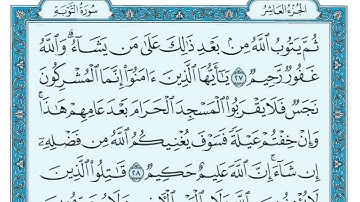 الجزء العاشر
سورة التوبة
ثُمَّ يَتُوبُ ٱللَّهُ مِنۢ بَعْدِ ذَٰلِكَ عَلَىٰ مَن يَشَآءُ ۗ وَٱللَّهُ
غَفُورٌ رَّحِيمٌ ٢٧ يَٰٓأَيُّهَا ٱلَّذِينَ ءَامَنُوٓا۟ إِنَّمَا ٱلْمُشْرِكُونَ
نَجَسٌ فَلَا يَقْرَبُوا۟ ٱلْمَسْجِدَ ٱلْحَرَامَ بَعْدَ عَامِهِمْ هَٰذَا ۚ
وَإِنْ خِفْتُمْ عَيْلَةً فَسَوْفَ يُغْنِيكُمُ ٱللَّهُ مِن فَضْلِهِۦٓ
إِن شَآءَ ۚ إِنَّ ٱللَّهَ عَلِيمٌ حَكِيمٌ ٢٨ قَٰتِلُوا۟ ٱلَّذِينَ